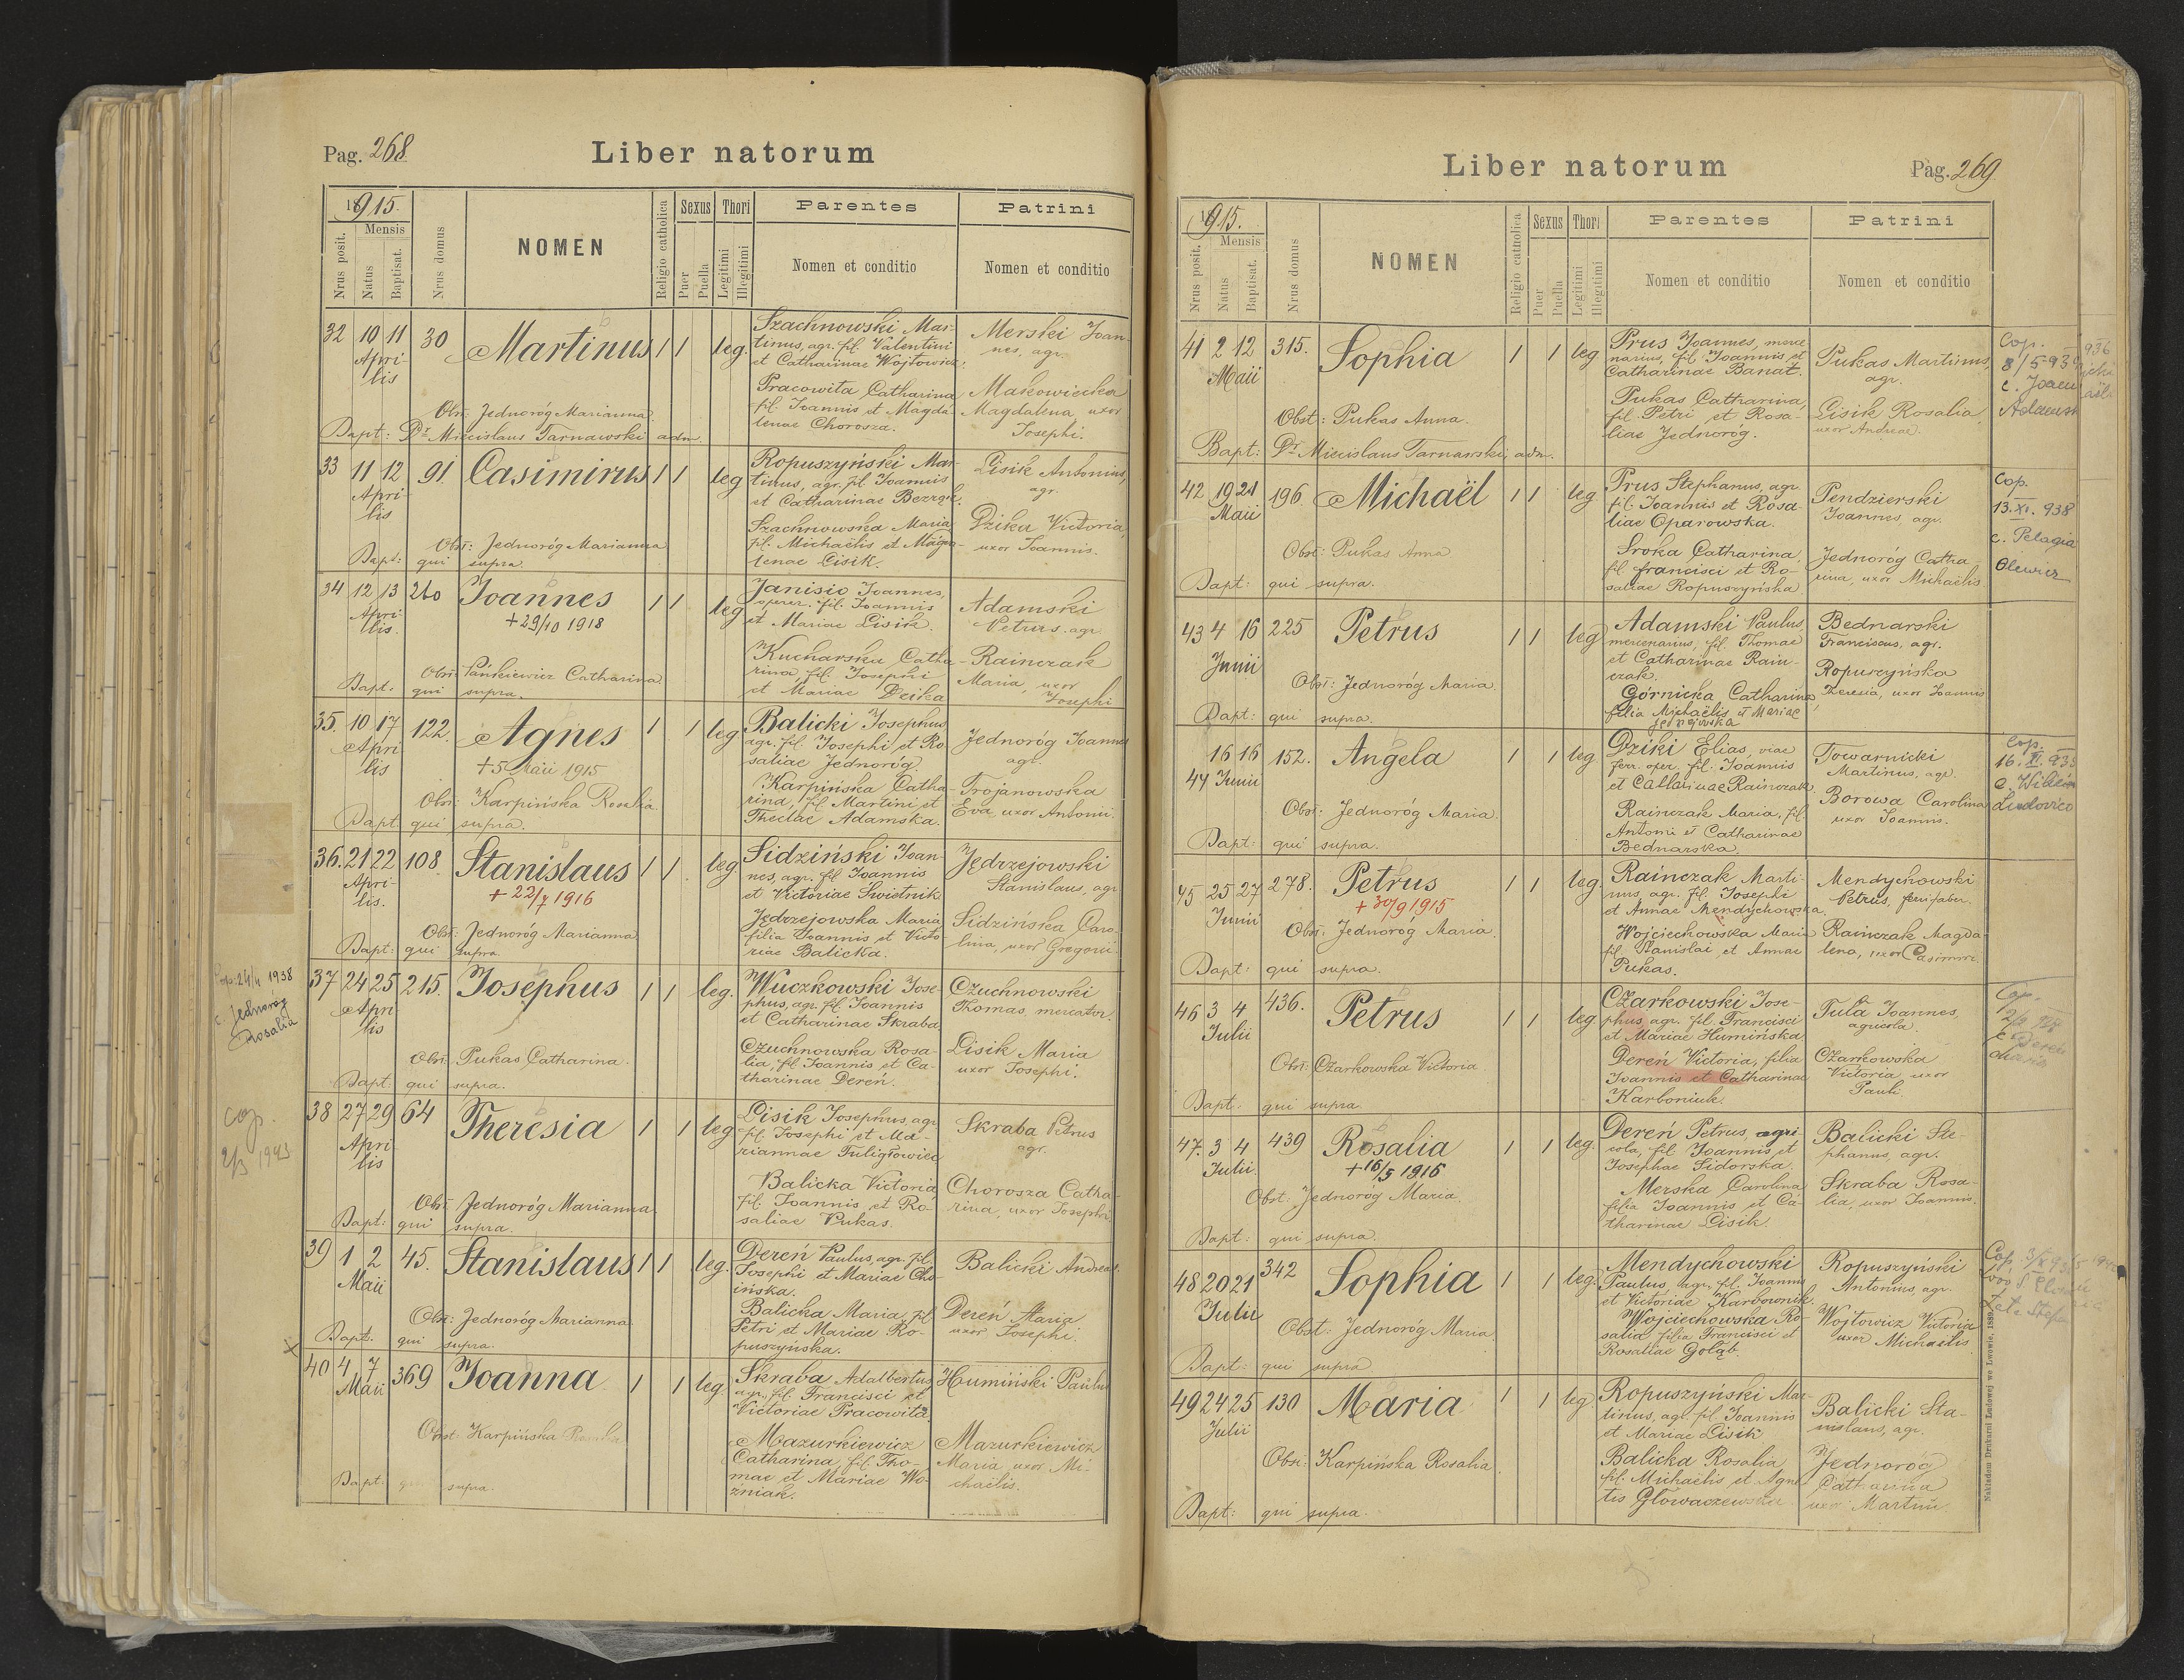 Pag. 268
Liber natorum
1915.
Mensis
Nrus posit.
Natus
Baptisat.
Nrus domus
NOMEN
Religio catholica
Sexus
Puer
Puella
Thori
Legitimi
Illegitimi
Parentes
Nomen et conditio
Patrini
Nomen et conditio
32 10 11 30 Martinus 1 1 leg.
Apri-
lis
Szachnowski Mar-
tinus, agr. fil. Valentini
et Catharinae Wojtowicz.
Pracowita Catharina
fil. Joannis et Magda-
lenae Chorosza.
Merski Joan-
nes, agr.
Makowiecka
Magdalena uxor
Josephi.
Obst: Jednoróg Marianna
Bapt: Dr Miecislaus Tarnawski adm.
33 11 12 91. Casimirus 1 1 leg
Apri-
lis
Ropuszyński Mar-
tinus, agr. fil. Joannis
et Catharinae
Szachnowska Maria
fil. Michaëlis et Magda-
lenae Lisik.
Lisik Antonius,
agr.
Dzika Victoria,
uxor Joannis.
Obst: Jednoróg Marianna
Bapt: qui supra.
34 12 13 260 Joannes 1 1 leg
Apri-
lis.
+ 29/10 1918
Janisio Joannes,
operar. fil. Joannis
et Mariae Lisik.
Kucharska Catha-
rina, fil. Josephi
et Mariae
Adamski
Petrus. agr.
Rainczak
Maria, uxor
Josephi
Obst: Pańkiewicz Catharina.
Bapt. qui supra.
35. 10 17 122. Agnes 1 1 leg
Apri
lis
+ 5 Maii 1915
Balicki Josephus
agr. fil. Josephi et Ro-
saliae Jednoróg.
Karpińska Catha-
rina, fil. Martini et
Theclae Adamska.
Jednoróg Joannes
agr.
Trojanowska
Eva, uxor Antonii.
Obst: Karpińska Rosalia
Bapt: qui supra.
36. 21 22 108. Stanislaus 1 1 leg
Apri-
lis.
+ 22/7 1916
Sidziński Joan-
nes, agr. fil. Joannis
et Victoriae Swietnik
Jędrzejowska Maria
filia Joannis et Victo-
riae Balicka.
Jędrzejowski
Stanislaus, agr
Sidzińska Caro-
lina, uxor Gregorii.
Obst: Jednoróg Marianna
Bapt: qui supra.
24/4 1938
c. Jednoróg
Rosalia
37 24 25 215. Josephus 1 1 leg.
Apri
lis
Wuczkowski Jose-
phus, agr. fil. Joannis
et Catharinae Skraba
Czuchnowska Rosa-
lia, fil. Joannis et Ca-
tharinae Dereń.
Czuchnowski
Thomas, mercator.
Lisik Maria
uxor Josephi.
Obst: Pukas Catharina.
Bapt: qui supra.
cop.
38 27 29 64 Theresia 1 1 leg
Apri
lis
Lisik Josephus, agr
fil. Josephi et Ma-
riannae Tuligłowiec
Balicka Victoria
fil. Joannis et Ro-
saliae Pukas.
Skraba Petrus
agr.
Chorosza Catha-
rina, uxor Josephi
Obst: Jednoróg Marianna
Bapt: qui supra.
39 1 2 45. Stanislaus 1 1 leg.
Maii
Dereń Paulus, agr. fil.
Josephi et Mariae Cho-
ińska.
Balicka Maria, fil
Petri et Mariae Ro-
puszyńska.
Balicki Andreas.
Dereń Maria
uxor Josephi.
Obst: Jednoróg Marianna
Bapt. qui supra.
40 4 7 369 Joanna 1 1 leg
Maii
Skraba Adalbertus
agr., fil. Francisci et
Victoriae Pracowita.
Mazurkiewicz
Catharina, fil. Tho-
mae et Mariae Wo-
zniak.
Humiński Paulus
Mazurkiewicz
Maria uxor Mi-
chaëlis.
Obst: Karpińska
Bapt: qui supra.
Liber natorum
Pag. 269
1915.
Mensis
Nrus posit.
Natus
Baptisat.
Nrus domus
NOMEN
Religio catholica
Sexus
Puer
Puella
Thori
Legitimi
Illegitimi
Parentes
Nomen et conditio
Patrini
Nomen et conditio
41 2 12 315. Sophia 1 1 leg
Maii
Prus Joannes, merce-
narius, fil. Joannis et
Catharinae Banat.
Pukas Catharina,
fil. Petri et Rosa-
liae Jednoróg.
Pukas Martinus,
agr.
Lisik Rosalia,
uxor Andreae.
Cop.
Obst: Pukas Anna.
Bapt: Dr Miecislaus Tarnawski, adm.
42 19 21 196. Michaël 1 1 leg
Maii
Prus Stephanus, agr
fil. Joannis et Rosa-
liae Oparowska.
Sroka Catharina
fil francisci et Ro-
saliae Ropuszyńska
Pendzierski
Joannes, agr.
Jednoróg Catha-
rina, uxor Michaëlis
Cop.
13. XI. 938
c. Pelagia
Olewicz
Obst: Pukas Anna
Bapt: qui supra.
43 4 16 225 Petrus 1 1 leg
Junii
Adamski Paulus,
mercenarius, fil. Thomae
et Catharinae Rain-
czak.
Górnicka Catharina
filia Michaëlis et Mariae
Bednarski
Franciscus, agr.
Ropuszyńska
Theresia, uxor Joannis
Obst: Jednoróg Maria
Bapt: qui supra.
44 16 16 152. Angela 1 1 leg
Junii
Dziki Elias, viae
ferr. oper. fil. Joannis
et Catharinae Rainczak.
Rainczak Maria, fil
Antoni et Catharinae
Bednarska.
Towarnicki
Martinus, agr.
Borowa Carolina
uxor Joannis.
Cop.
Ludovico
Obst: Jednoróg Maria.
Bapt: qui supra.
45 25 27 278. Petrus 1 1 leg.
Junii
+ 30/9 1915
Rainczak Marti-
nus, agr. fil. Josephi
et Annae Mendychowska.
Wojciechowska Maria
fil. Stanislai et Annae
Pukas.
Mendychowski
Petrus, ferrifaber.
Rainczak Magda-
lena, uxor Casimiri.
Obst: Jednoróg Maria.
Bapt: qui supra.
46 3 4 436. Petrus 1 1 leg.
Julii
Czarkowski Jose-
phus, agr. fil. Francisci
et Mariae Humińska
Dereń Victoria, filia
Joannis et Catharinae
Karboniuk.
Tula Joannes,
agricola.
Czarkowska
Victoria uxor
Pauli.
Cop.
Obst: Czarkowska Victoria
Bapt: qui supra.
47. 3 4 439 Rosalia 1 1 leg.
Julii
+ 16/5 1916
Dereń Petrus, agri-
cola, fil Joannis et
Josephae Sidorska.
Merska Carolina
filia Joannis et Ca-
tharinae Lisik.
Balicki Ste-
phanus, agr.
Skraba Rosa-
lia, uxor Joannis.
Obst: Jednoróg Maria.
Bapt: qui supra.
48 20 21 342 Sophia 1 1 leg.
Julii
Mendychowski
Paulus, agr. fil. Joannis
et Victoriae Karbownik.
Wojciechowska Ro-
salia filia Francisci et
Rosaliae Gołąb.
Ropuszyński
Antonius, agr.
Wojtowicz Victoria
uxor Michaëlis
Cop.
Obst: Jednoróg Maria
Bapt: qui supra
49 24 25 130 Maria 1 1 leg
Julii
Ropuszyński Mar-
tinus, agr. fil. Joannis
et Mariae Lisik
Balicka Rosalia
fil. Michaëlis et Agne-
tis Głowaczewska
Balicki Sta-
nislaus, agr.
Jednoróg
Catharina
uxor Martini
Obst: Karpińska Rosalia.
Bapt: qui supra.
Nakładem Drukarni Ludowej we Lwowie. 1889.